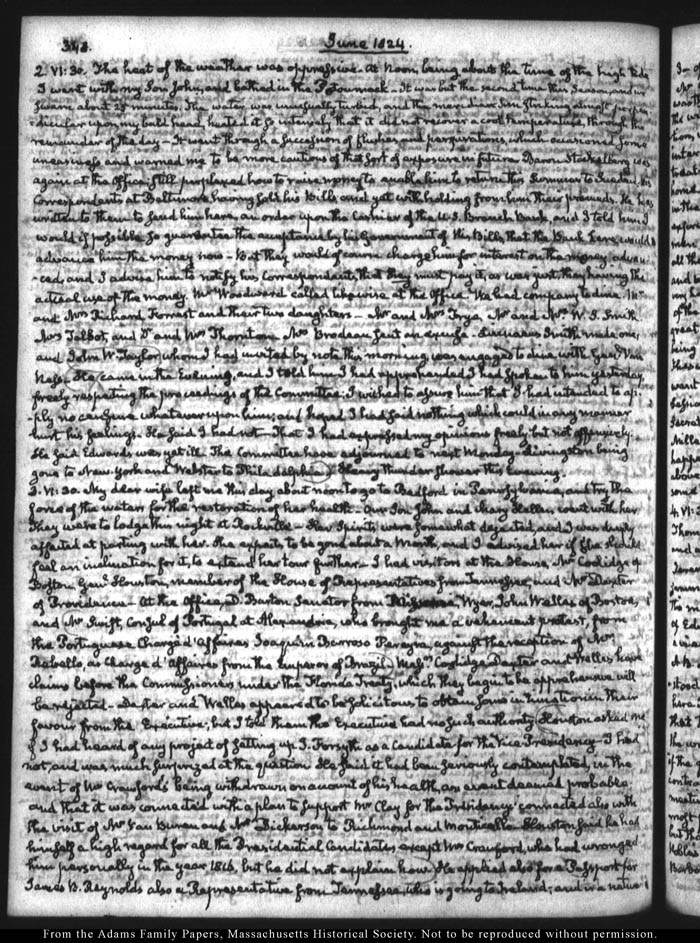 348.
June 1824.
2. VI:30. The heat of the weather was oppressive. At Noon, being about the time of the high tide
I went with my Son John, and bathed in the Potowmack. It was but the second time this Season, and we
swam about 25 minutes. The water was unusually turbid, and the meridian Sun striking almost perpen
dicular upon my bald head, heated it so intensely that it did not recover a cool temperature through the
remainder of the day. It went through a succession of flushes and perspirations, which occasioned some
uneasiness and warned me to be more cautious of that sort of exposure in future. Baron Stackelberg was
again at the Office, still perplexed how to raise money to enable him to return this Summer to Sweden. His
Correspondents at Baltimore having sold his Bills, and yet withholding from him their proceeds. He has
written to them to send him here, an order upon the Cashier of the U.S. Branch Bank, and I told him I
would if possible so guarantee the acceptance by his Government of His Bills, that the Bank here, would
advance him the money now. But they would of course charge him for interest on the money advan
-ced, and I advise him to notify his Correspondents, that they must pay it, as was just, they having the
actual use of the money. Mr Woodward called likewise at the Office. We had company to dine. Mr
and Mrs Richard Forrest and their two daughters. Mr and Mrs Frye, Mr and Mrs W. S. Smith
Mrs Talbot, and Dr and Mrs Thornton. Mrs Brodeau sent an excuse. Smith made one,
and John W. Taylor whom I had invited by note this morning, was engaged to dine with Genl Van
Ness. He came in the Evening, and I told him I had apprehended I had spoken to him yesterday,
freely respecting the proceedings of the Committee: I wished to assure him that I had intended to ap
-ply no censure whatever upon him; and hoped I had said nothing which could in any manner
hurt his feelings. He said I had not. That I had expressed my opinions freely but not offensively.
He said Edwards was yet ill. The Committee have adjourned to next Monday. Livingston being
gone to New-York and Webster to Philadelphia. Heavy thunder shower this Evening.
3. VI:30. My dear wife left me this day about noon to go to Bedford in Pennsylvania, and try the
force of the waters for the restoration of her health. Our Son John and Mary Hellen went with her
They were to lodge this night at Rockville. Her Spirits were somewhat dejected, and I was deeply
affected at parting with her. She expects to be gone about a Month, and I advised her if she should
feel an inclination for it, to extend her tour further. I had visitors at the House, Mr Coolidge of
Boston Genl Houston, member of the House of Representatives from Tennessee, and Mr Dexter
of Providence. At the Office, D. Barton Senator from Missouri, Wyer, John Welles of Boston,
and Mr Swift, Consul of Portugal at Alexandria, who brought me a vehement protest, from
the Portuguese Chargé d'Affaires Joaquim Barroso Pereyra, against the reception of Mr
Rebello, as Chargé d'Affaires from the Emperor of Brazil. Messrs Coolidge, Dexter and Welles have
claims before the Commissioners under the Florida Treaty, which they begin to be apprehensive will
be rejected. Dexter and Welles appeared to be solicitous to obtain some in their
favour from the Executive, but I told them the Executive had no such authority. Houston asked me
if I had heard of any project of getting up J. Forsyth as a Candidate for the Vice Presidency. I had
not, and was much surprized at the question. He said it had been seriously contemplated, in the
event of Mr Crawford's being withdrawn on account of his health, an event deemed probable
and that it was connected with a plan to support Mr Clay for the Presidency: connected also with
the visit of Mr Van Buren and Mr Dickerson to Richmond and Monticello. Houston said he had
himself a high regard for all the Presidential Candidates, except Mr Crawford, who had wronged
him personally in the year 1816, but he did not explain how. He applied also for a Passport for
James B. Reynolds also a Representative from Tennessee, who is going to Ireland, and is a native
From the Adams Family Papers, Massachusetts Historical Society. Not to be reproduced without permission.